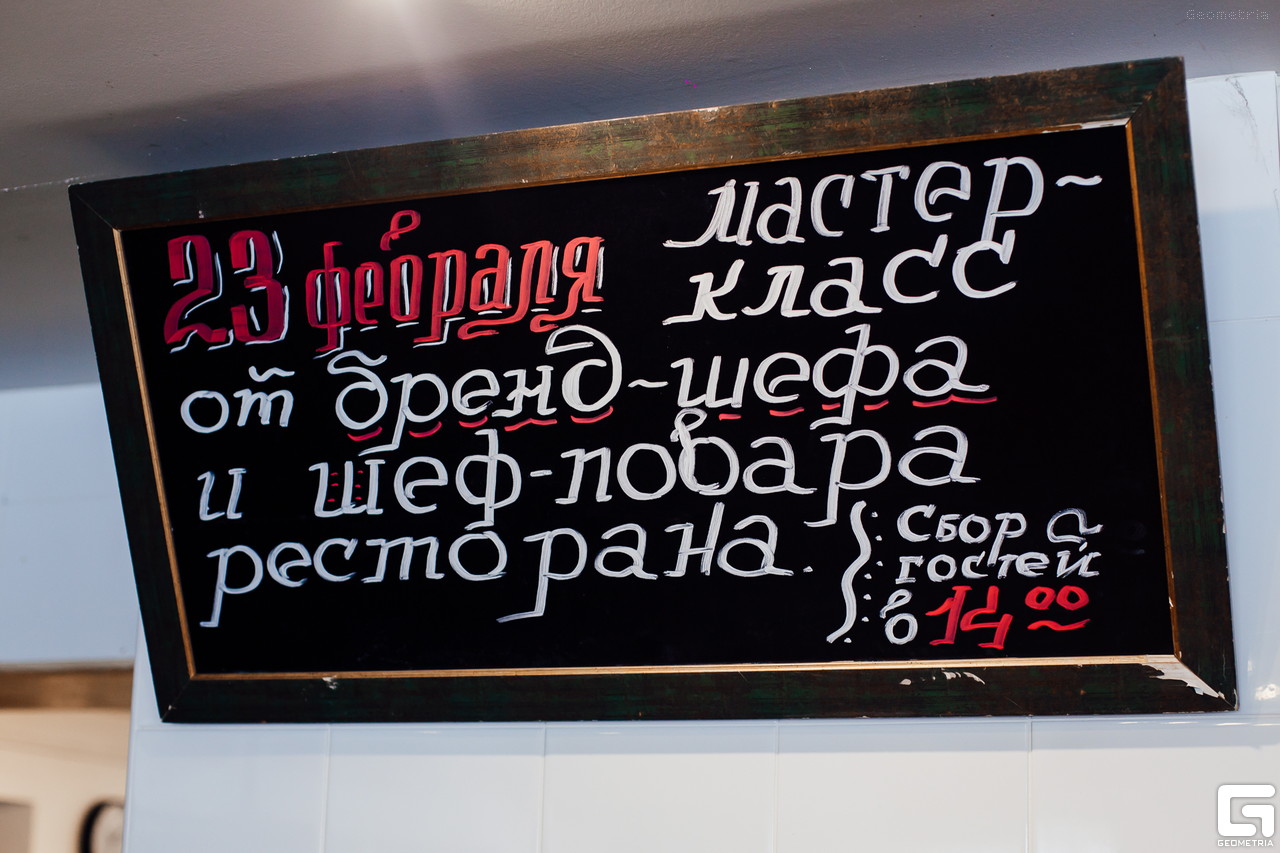 Geometria
23 февраля мастер-
класс
от бренд-шефа
и шеф-повара
ресторана.
Сбор
гостей
в 14 00
GEOMETRIA